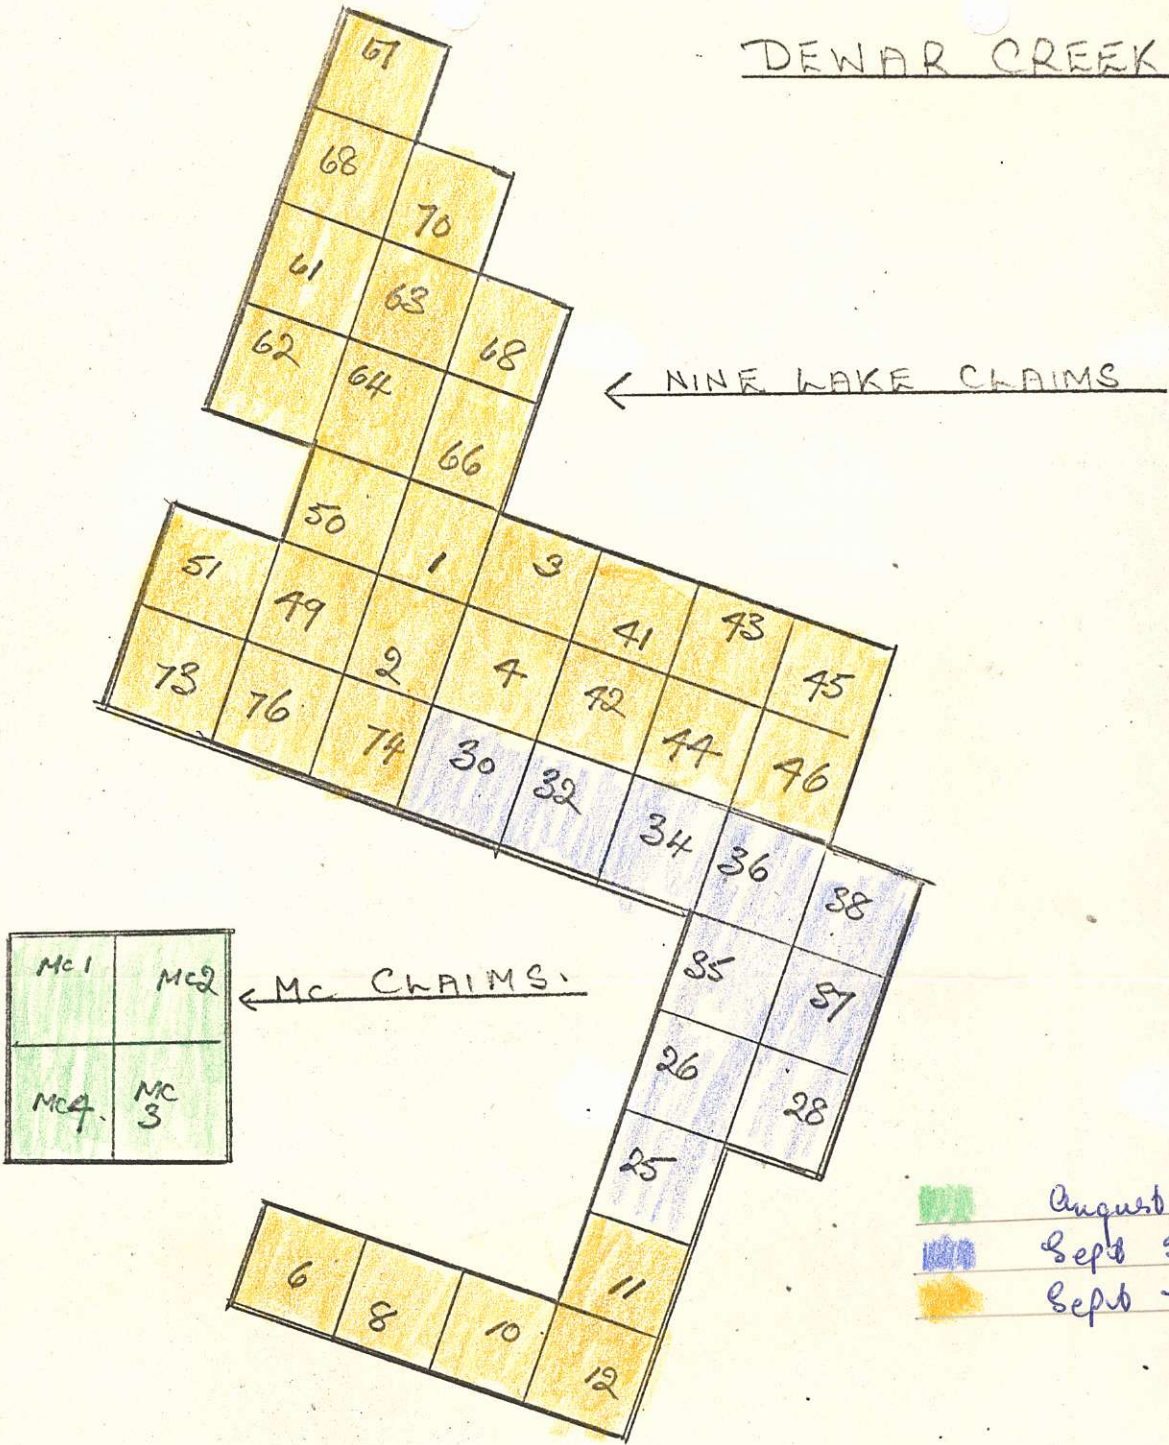 DEWAR CREEK
67
68
70
61
63
68
62
64
66
NINE LAKE CLAIMS
50
1
3
41
43
45
51
49
2
4
42
44
46
73
76
74
30
32
34
36
38
35
37
26
28
25
11
12
6
8
10
Mc1
Mc2
Mc4.
Mc
3
Mc CLAIMS.
August
Sept
Sept